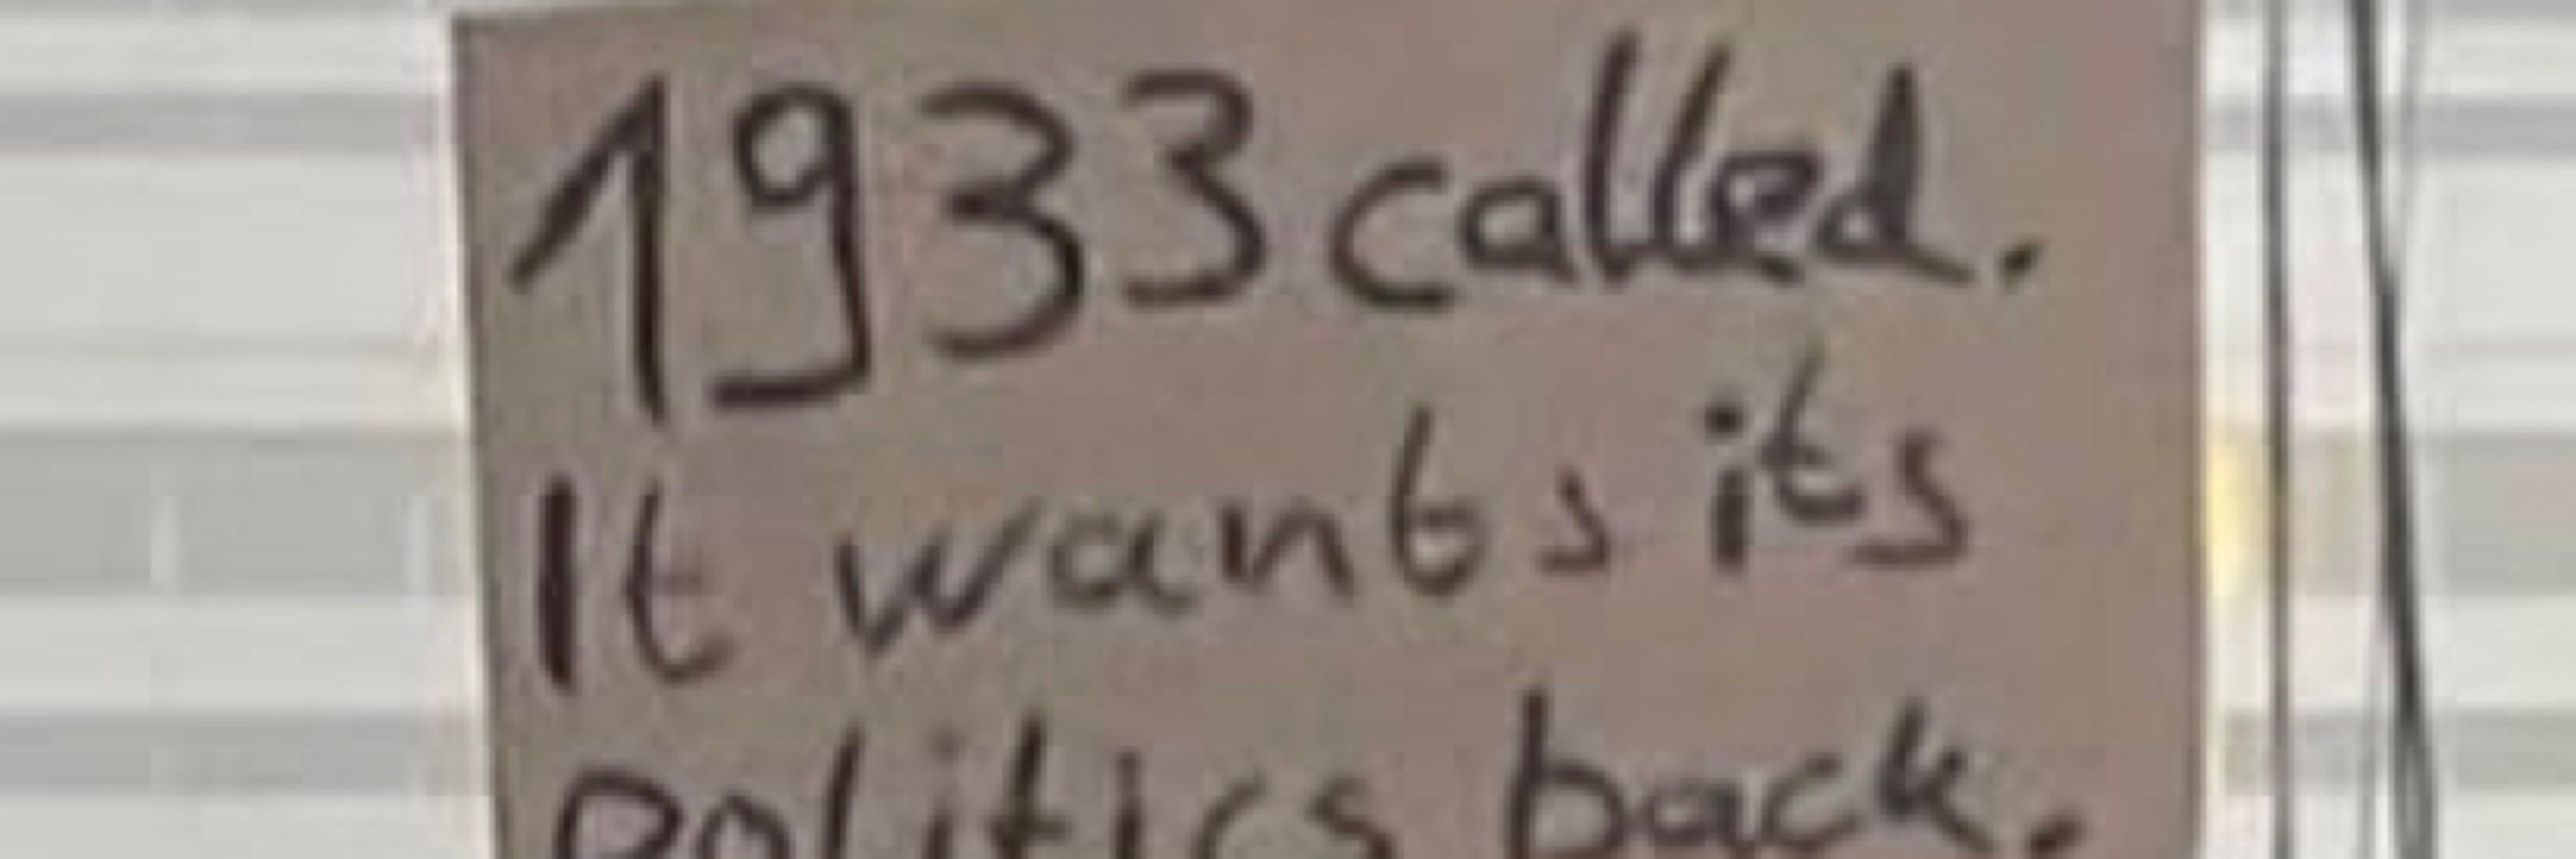 1933 called.
It wants its
politics back.